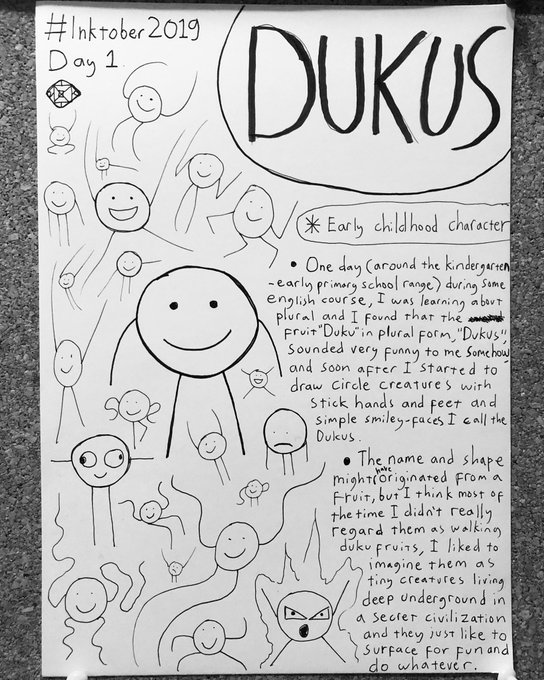 #Inktober2019
Day 1.
DUKUS
* Early childhood character
• One day (around the kindergarten
-early primary school range) during some
english course, I was learning about
plural and I found that the
fruit "Duku" in plural form, "Dukus",
sounded very funny to me somehow
and soon after I started to
draw circle creatures with
stick hands and feet and
simple smiley-faces I call the
Dukus.
• The name and shape
might have originated from a
fruit, but I think most of
the time I didn't really
regard them as walking
duku fruits, I liked to
imagine them as
tiny creatures living
deep underground in
a secret civilization
and they just like to
surface for fun and
do whatever.